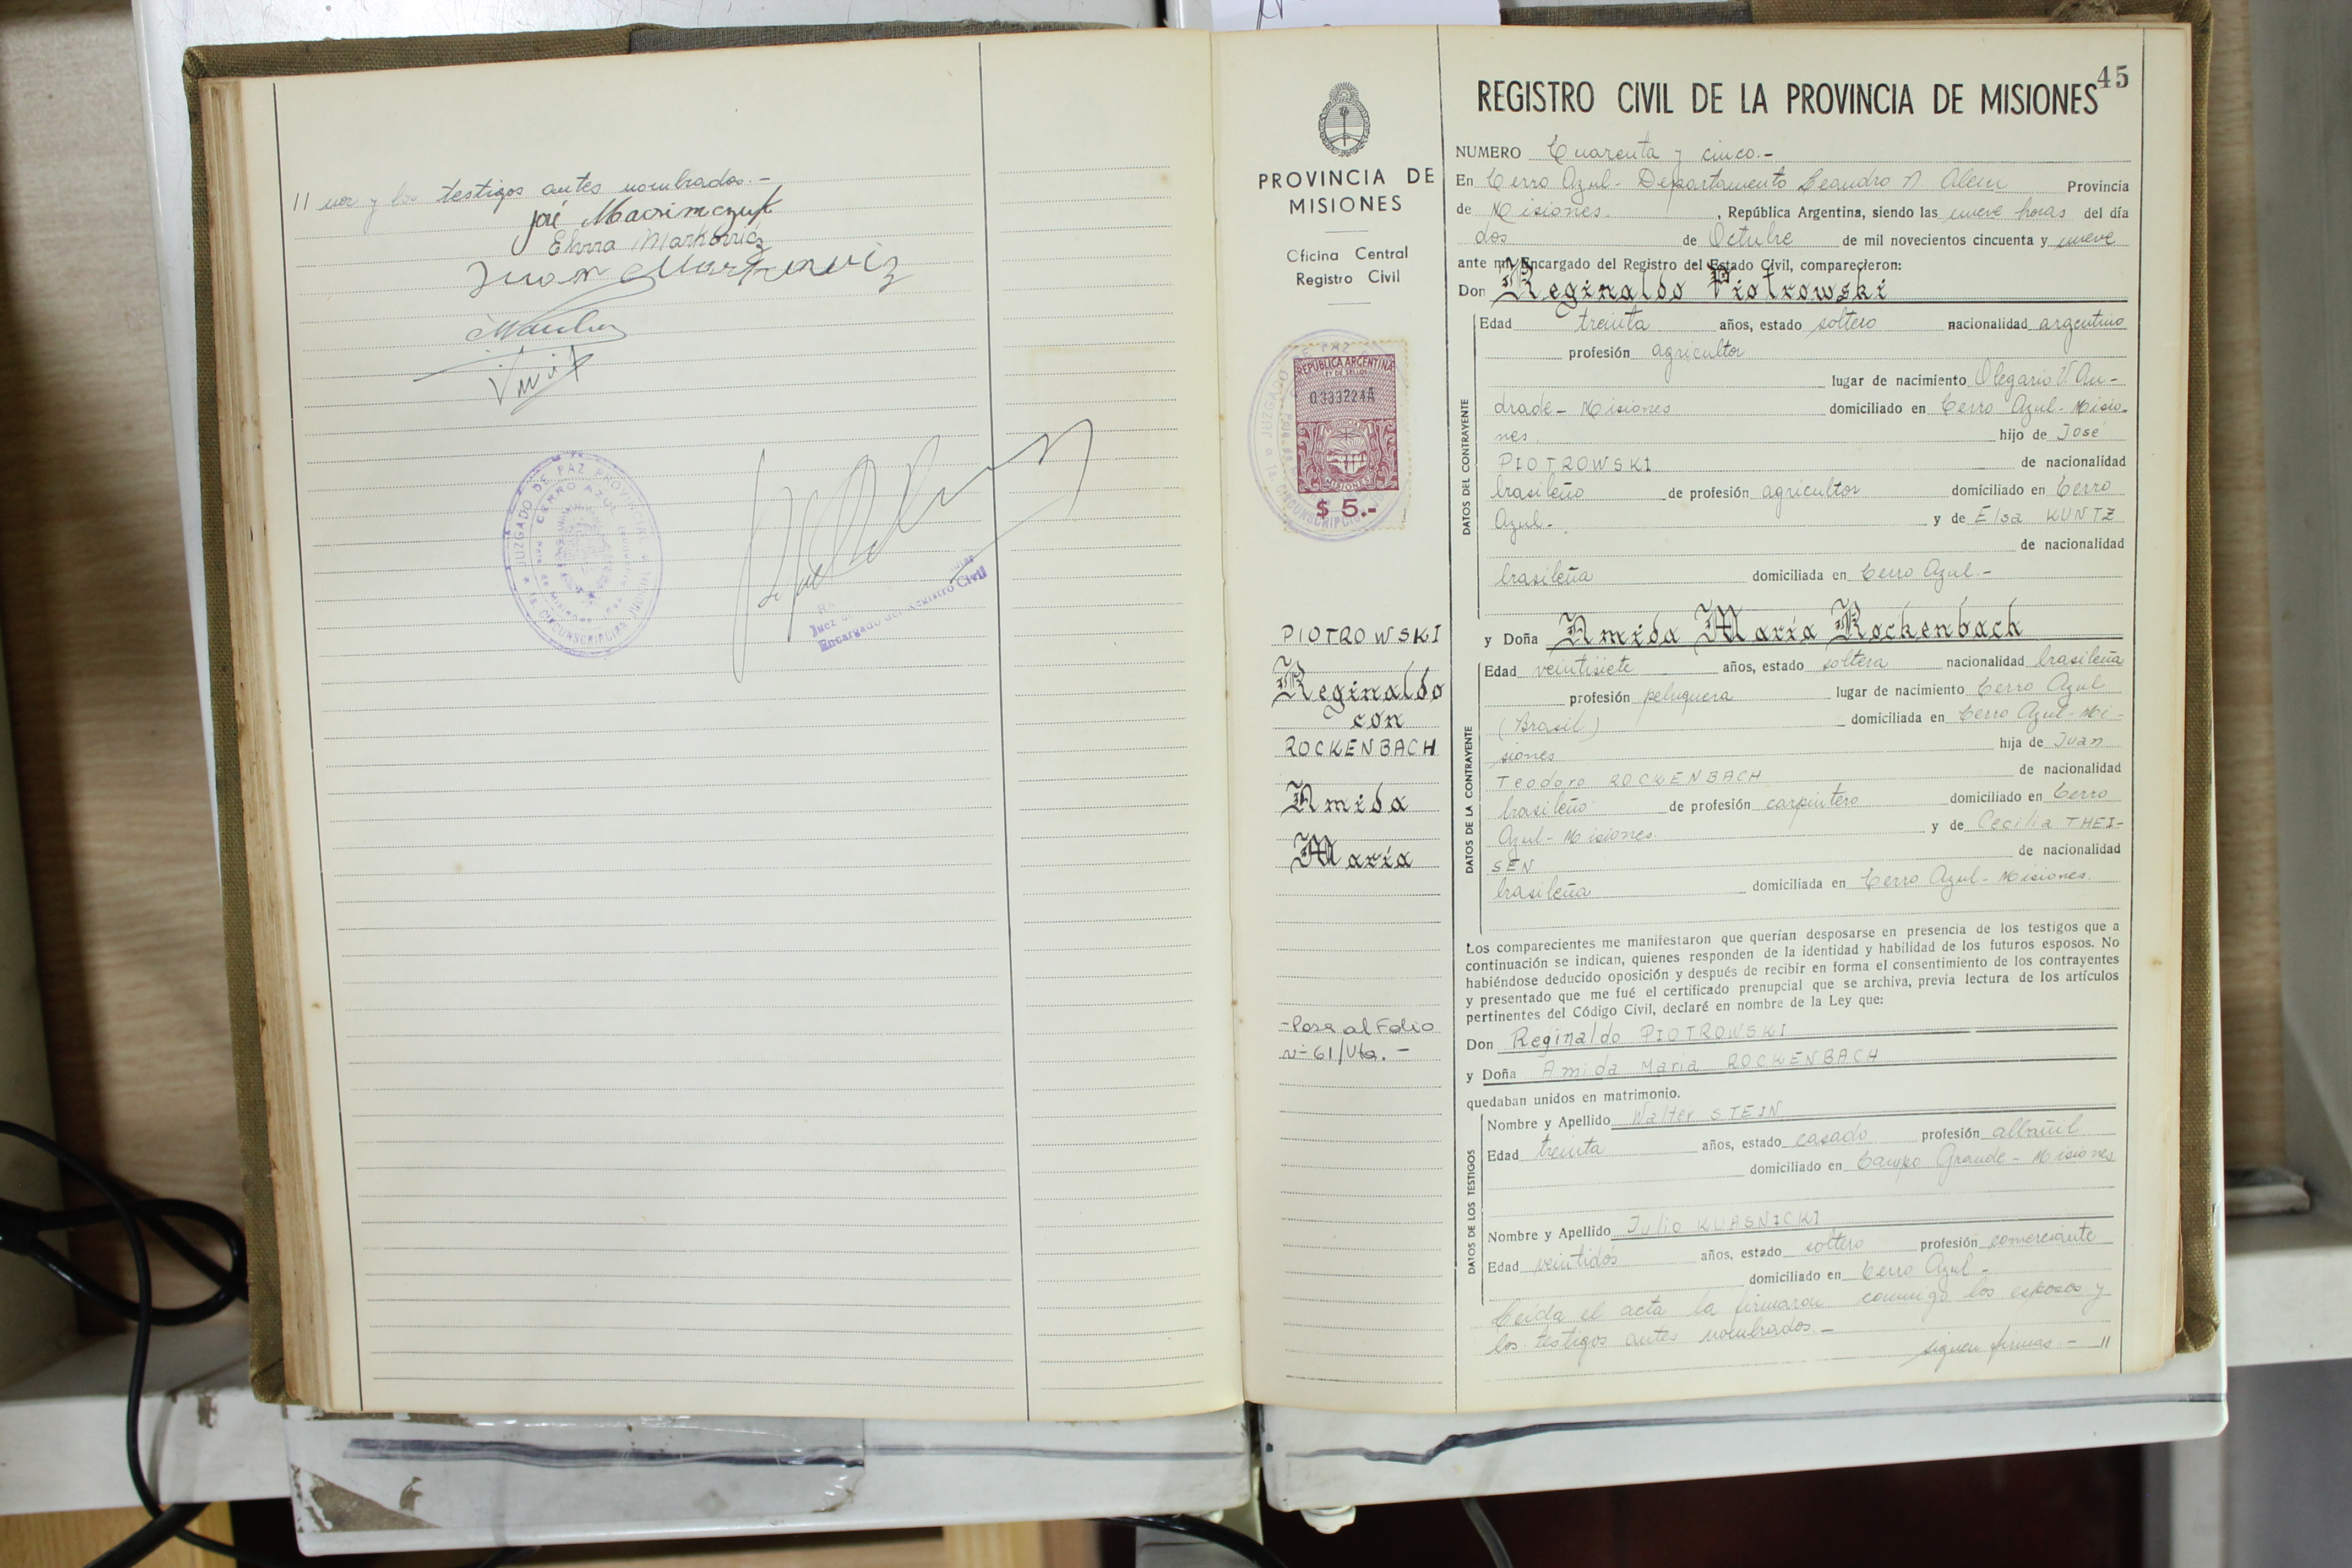 11 nor y los testigos antes nombrados.-
José
Elvira Markovicz
Juan Markowicz
JUZGADO DE PAZ PROVINCIAL
CERRO AZUL
1a. CIRCUNSCRIPCION JUDICIAL
Juez de
Encargado del Registro Civil
PROVINCIA DE
MISIONES
Oficina Central
Registro Civil
REPUBLICA ARGENTINA
LEY DE SELLOS
0333224A
PROVINCIA DE
MISIONES
$ 5.-
PIOTROWSKI
Reginaldo
con
ROCKENBACH
Amida
María
-Pasa al Folio
nº 61/Vta.-
45
REGISTRO CIVIL DE LA PROVINCIA DE MISIONES
NUMERO Cuarenta y cinco.-
En Cerro Azul- Departamento Leandro N. Alem Provincia
de Misiones. , República Argentina, siendo las nueve horas del día
dos de Octubre de mil novecientos cincuenta y nueve
ante mí, Encargado del Registro del Estado Civil, comparecieron:
Don Reginaldo Piotrowski
DATOS DEL CONTRAYENTE
Edad treinta años, estado soltero nacionalidad argentino
profesión agricultor
lugar de nacimiento Olegario V. An-
drade- Misiones domiciliado en Cerro Azul- Misio-
nes. hijo de José
PIOTROWSKI de nacionalidad
brasileño de profesión agricultor domiciliado en Cerro
Azul.- y de Elsa KUNTZ
de nacionalidad
brasileña domiciliada en Cerro Azul.-
y Doña Amida María Rockenbach
DATOS DE LA CONTRAYENTE
Edad veintisiete años, estado soltera nacionalidad brasileña
profesión peluquera lugar de nacimiento Cerro Azul
(Brasil) domiciliada en Cerro Azul- Mi-
siones hija de Juan
Teodoro ROCKENBACH de nacionalidad
brasileño de profesión carpintero domiciliado en Cerro
Azul- Misiones. y de Cecilia THEI-
SEN de nacionalidad
brasileña domiciliada en Cerro Azul- Misiones.
Los comparecientes me manifestaron que querían desposarse en presencia de los testigos que a
continuación se indican, quienes responden de la identidad y habilidad de los futuros esposos. No
habiéndose deducido oposición y después de recibir en forma el consentimiento de los contrayentes
y presentado que me fué el certificado prenupcial que se archiva, previa lectura de los artículos
pertinentes del Código Civil, declaré en nombre de la Ley que:
Don Reginaldo PIOTROWSKI
y Doña Amida Maria ROCKENBACH
quedaban unidos en matrimonio.
DATOS DE LOS TESTIGOS
Nombre y Apellido Walter STEIN
Edad treinta años, estado casado profesión albañil
domiciliado en Campo Grande- Misiones
Nombre y Apellido Julio KUASNICKI
Edad veintidós años, estado soltero profesión comerciante
domiciliado en Cerro Azul.-
Leída el acta la firmaron conmigo los esposos y
los testigos antes nombrados.-
siguen firmas.- 11